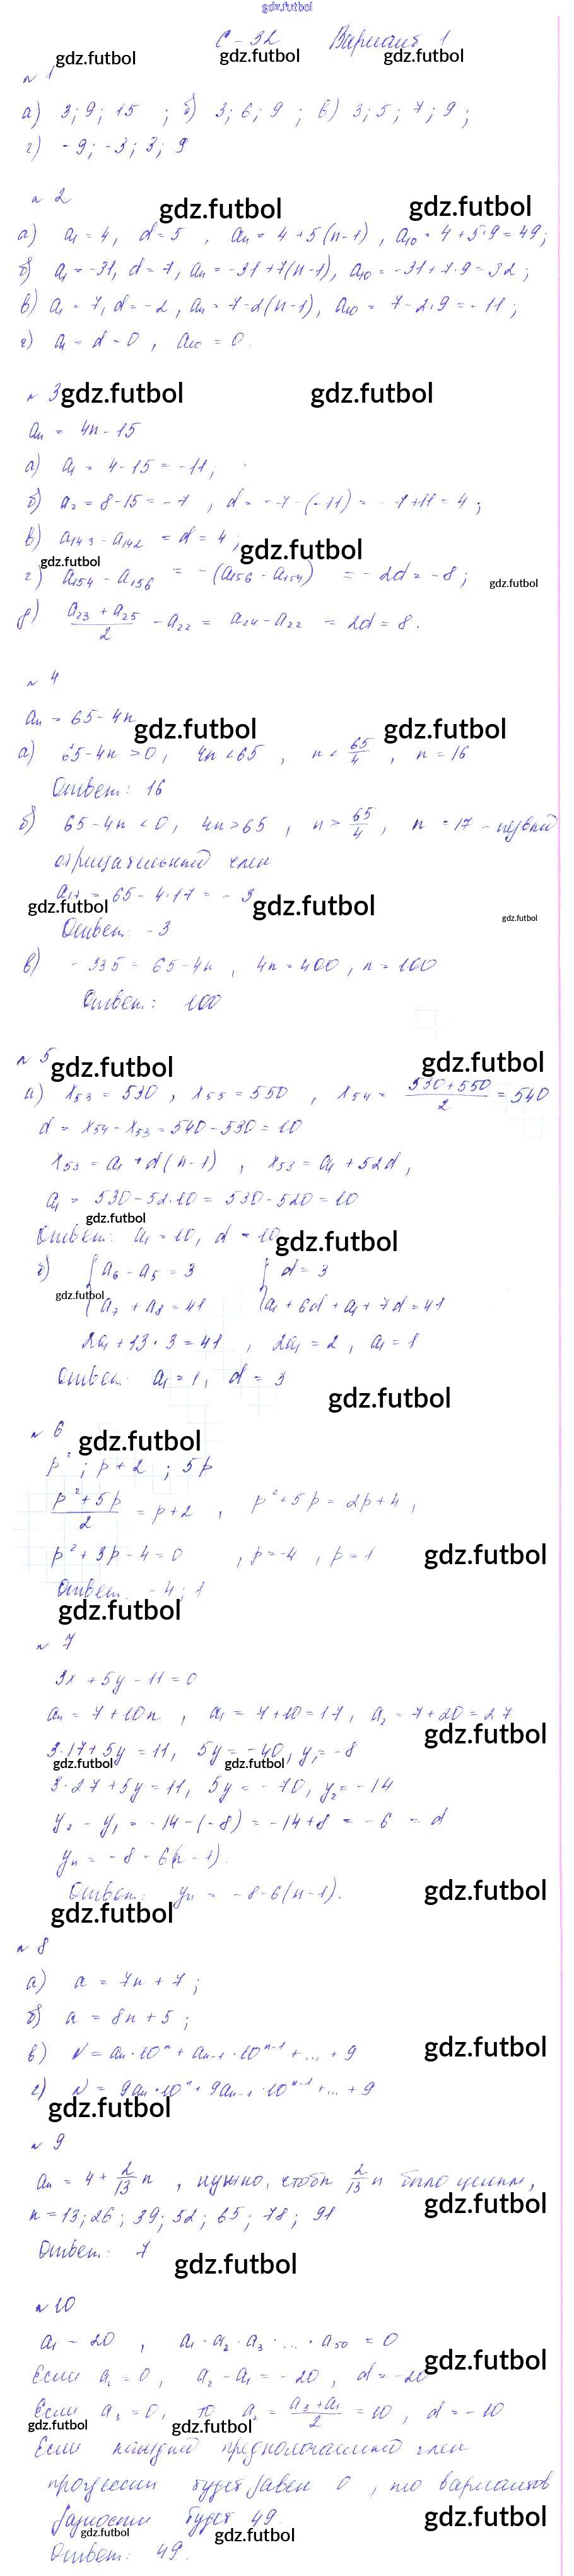 gdz.futbol
С-32 Вариант 1
gdz.futbol gdz.futbol gdz.futbol
№ 1
а) 3; 9; 15 ; б) 3; 6; 9 ; в) 3; 5; 7; 9;
г) -9; -3; 3; 9
№ 2
gdz.futbol gdz.futbol
а) a₁ = 4, d = 5 , aₙ = 4 + 5(n-1) , a₁₀ = 4 + 5·9 = 49;
б) a₁ = -31, d = 7, aₙ = -31+7(n-1), a₁₀ = -31+7·9 = 32;
в) a₁ = 7, d = -2, aₙ = 7-2(n-1), a₁₀ = 7-2·9 = -11;
г) a₁ = d = 0 , a₁₀ = 0.
№ 3 gdz.futbol gdz.futbol
aₙ = 4n - 15
а) a₁ = 4-15 = -11;
б) a₂ = 8-15 = -7 , d = -7-(-11) = -7+11 = 4;
в) a₁₄₃ - a₁₄₂ = d = 4;
gdz.futbol
gdz.futbol gdz.futbol
г) a₁₅₄ - a₁₅₆ = -(a₁₅₆ - a₁₅₄) = -2d = -8;
д) (a₂₃ + a₂₅)/2 - a₂₂ = a₂₄ - a₂₂ = 2d = 8.
№ 4
aₙ = 65-4n
gdz.futbol gdz.futbol
а) 65-4n > 0, 4n < 65 , n < 65/4 , n = 16
Ответ: 16
б) 65-4n < 0, 4n > 65 , n > 65/4 , n = 17 - первый
отрицательный член
a₁₇ = 65 - 4·17 = -3
gdz.futbol gdz.futbol gdz.futbol
Ответ: -3
в) -335 = 65-4n , 4n = 400, n = 100
Ответ: 100
№ 5 gdz.futbol gdz.futbol
а) x₅₃ = 530 , x₅₅ = 550 , x₅₄ = (530+550)/2 = 540
d = x₅₄ - x₅₃ = 540-530 = 10
x₅₃ = a₁ + d(n-1) , x₅₃ = a₁ + 52d,
a₁ = 530-52·10 = 530-520 = 10
gdz.futbol
Ответ: a₁ = 10, d = 10
gdz.futbol
б) { a₆ - a₅ = 3 { d = 3
gdz.futbol
a₇ + a₈ = 41 a₁ + 6d + a₁ + 7d = 41
2a₁ + 13·3 = 41 , 2a₁ = 2 , a₁ = 1
Ответ: a₁ = 1, d = 3
gdz.futbol
№ 6
gdz.futbol
p² ; p+2 ; 5p
(p²+5p)/2 = p+2 , p²+5p = 2p+4,
p²+3p-4 = 0 , p = -4 , p = 1
gdz.futbol
Ответ: -4; 1
gdz.futbol
№ 7
3x + 5y - 11 = 0
aₙ = 7+10n , a₁ = 7+10 = 17, a₂ = 7+20 = 27
gdz.futbol
3·17+5y = 11, 5y = -40, y₁ = -8
gdz.futbol gdz.futbol
3·27+5y = 11, 5y = -70, y₂ = -14
y₂ - y₁ = -14-(-8) = -14+8 = -6 = d
yₙ = -8-6(n-1).
Ответ: yₙ = -8-6(n-1).
gdz.futbol
gdz.futbol
№ 8
а) a = 7n+7;
б) a = 8n+5;
в) N = aₙ·10ⁿ + aₙ₋₁·10ⁿ⁻¹ + ... + 9
gdz.futbol
г) N = 9aₙ·10ⁿ + 9aₙ₋₁·10ⁿ⁻¹ + ... + 9
gdz.futbol
№ 9
aₙ = 4 + 2/13 n , нужно, чтобы 2/13 n было целым,
gdz.futbol
n = 13; 26; 39; 52; 65; 78; 91
Ответ: 7
gdz.futbol
№ 10
a₁ = 20 , a₁·a₂·a₃·...·a₅₀ = 0
gdz.futbol
Если a₂ = 0, a₂ - a₁ = -20 , d = -20
Если a₃ = 0, то a₂ = (a₃+a₁)/2 = 10, d = -10
gdz.futbol gdz.futbol
Если каждый член
прогрессии будет равен 0 , то вариантов
разности будет 49.
gdz.futbol
gdz.futbol gdz.futbol
Ответ: 49.